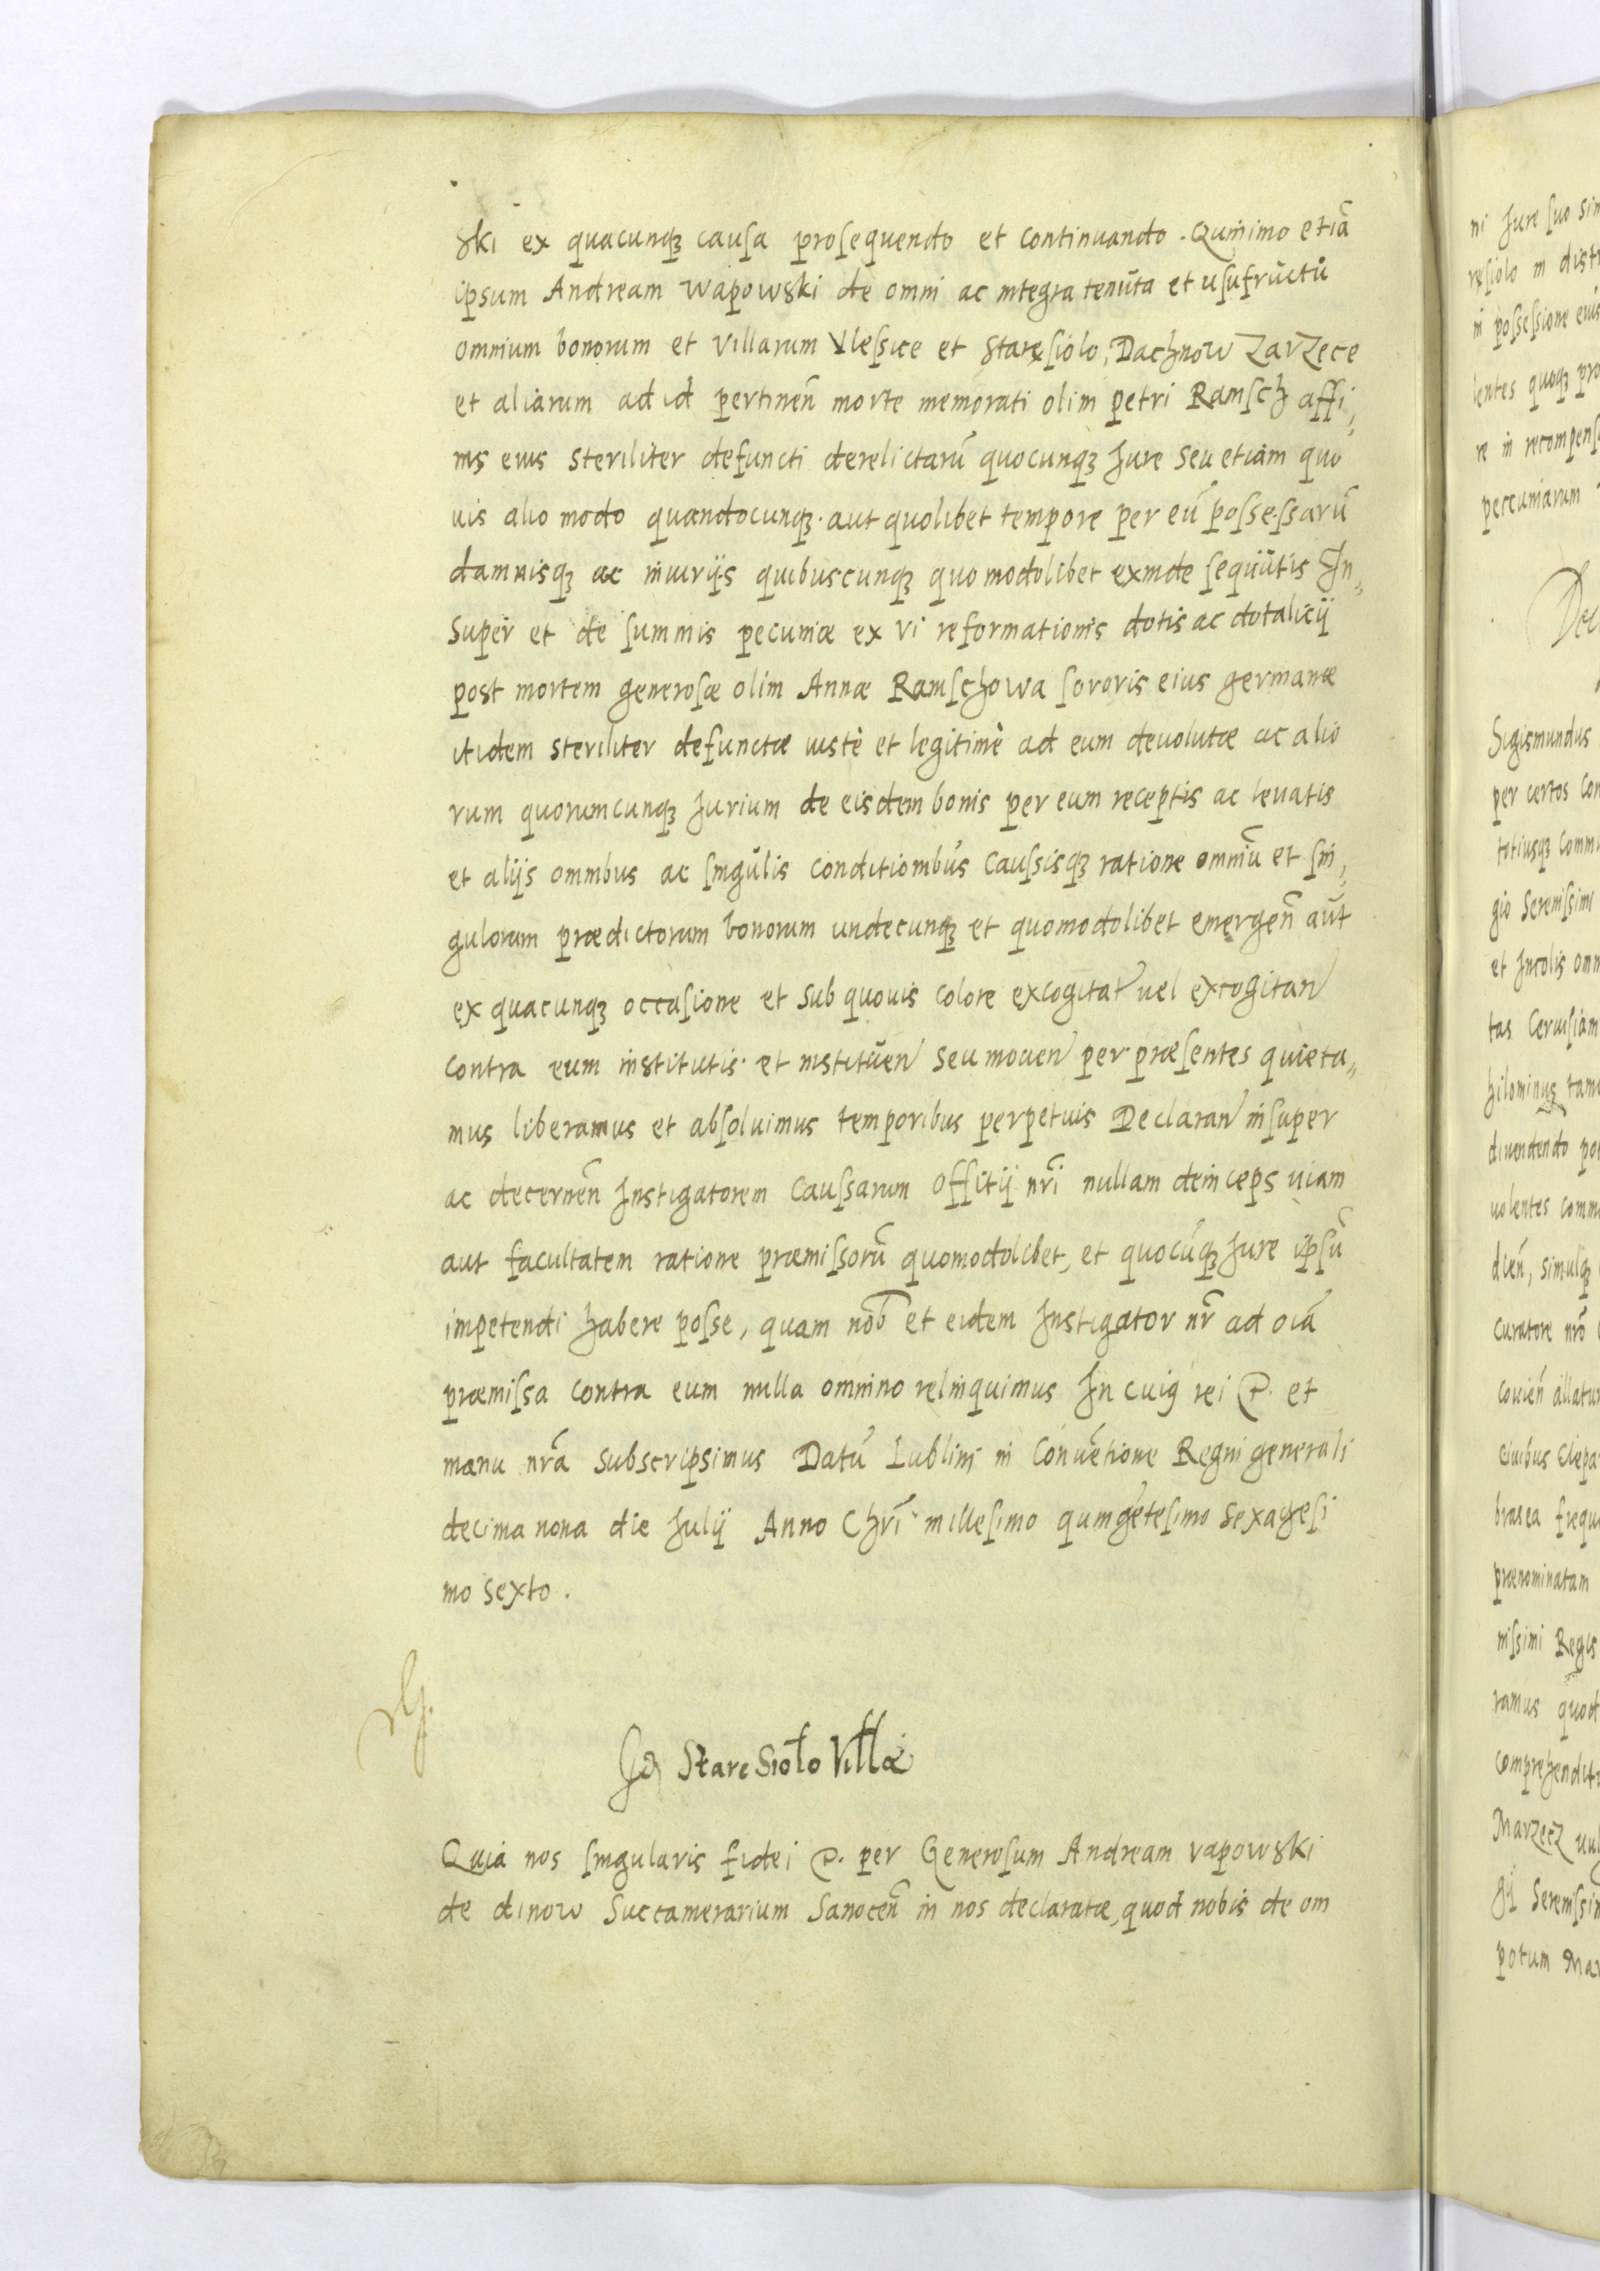 ski ex quacunqꝫ causa prosequendo et continuando. Quinimo etiã
ipsum Andream Wapowski de omni ac integra tenuta et usufructu
omnium bonorum et villarum Vlessice et Staresiolo, Dachnow Zarzece
et aliarum ad id pertineñ morte memorati olim petri Ramsch affi„
nis eius steriliter defuncti derelictarũ quocunqꝫ Jure seu etiam quo
uis alio modo quandocunqꝫ aut quolibet tempore per eũ possessarũ
damnisqꝫ ac iniurijs quibuscunqꝫ quomodolibet exinde sequutis In„
super et de summis pecuniæ ex vi reformationis dotis ac dotalicij
post mortem generosæ olim Annæ Ramschowa sororis eius germanæ
itidem steriliter defunctæ iustè et legitimè ad eum deuolutæ ac alio
rum quorumcunqꝫ Jurium de eisdem bonis per eum receptis ac leuatis
et alijs omnibus ac singulis conditionibus caussisqꝫ ratione omniũ et sin„
gulorum prædictorum bonorum undecunqꝫ et quomodolibet emergeñ aut
ex quacunqꝫ occasione et sub quouis colore excogitat uel excogitan
contra eum institutis et instituen seu mouen per præsentes quieta„
mus liberamus et absoluimus temporibus perpetuis Declaran insuper
ac decerneñ Instigatorem caussarum Offitij nrĩ nullam deinceps uiam
aut facultatem ratione præmissorũ quomodolibet, et quocũqꝫ Jure ipsũ
impetendi habere posse, quam nob̃ et eidem Instigator nr̃ ad oĩa
præmissa contra eum nulla omnino relinquimus In cuiꝰ rei &. et
manu nrã subscripsimus Datũ Lublini in Conuẽtione Regni generali
decima nona die Julij Anno Chrĩ millesimo quingẽtesimo sexagesi
mo sexto.
Staresioło Villæ
Quia nos singularis fidei &. per Generosum Andream vapowski
de dinow Succamerarium Sanoceñ in nos declaratæ, quod nobis de om
ni Jure suo
resiolo in
in possessione
lentes quoqꝫ
re in
pecuniarum
Sigismundus
per certos
totiusqꝫ
gio
et Incolis
tas
diuendendo
uolentes
dieñ, simulqꝫ
curatore nrõ
prænominatam
nissimi Regis
ramus quod
Marzecz
potum